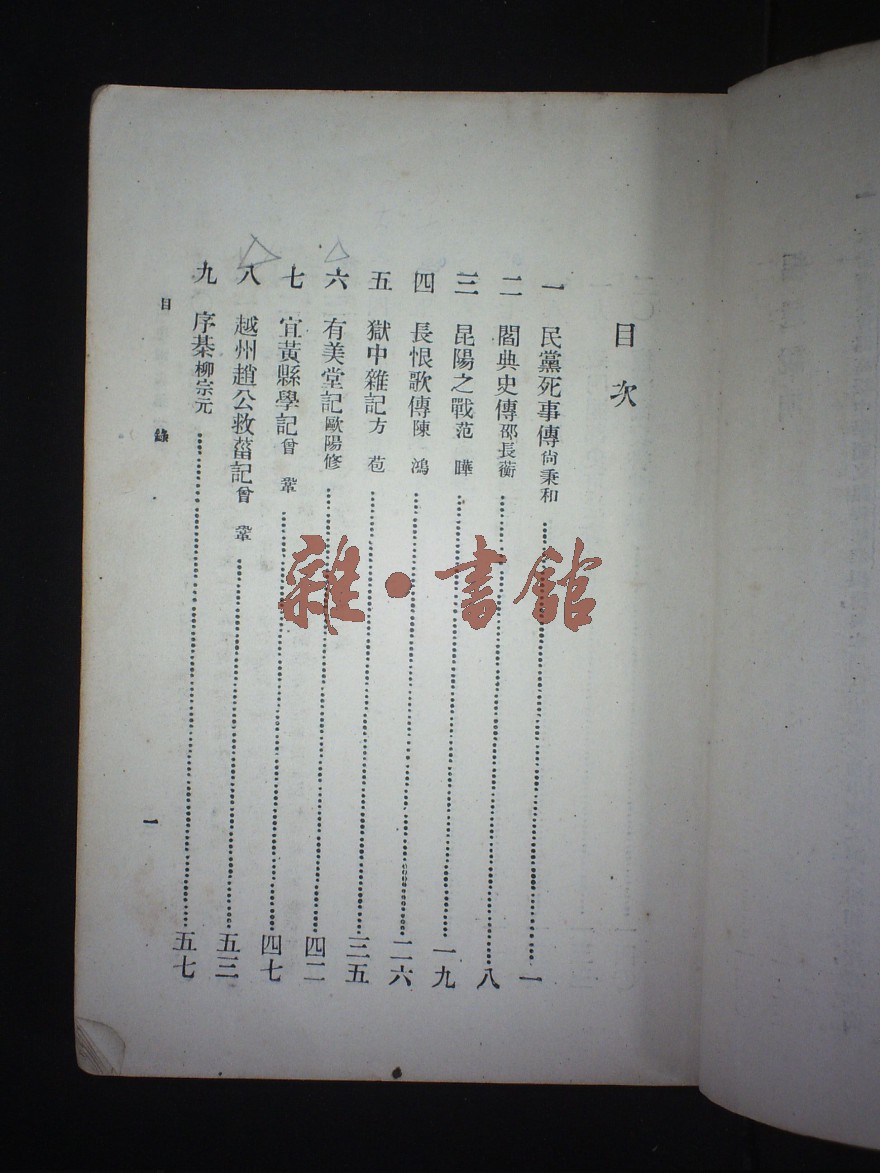 目次
一 民黨死事傳 尙秉和 一
二 閻典史傳 邵長蘅 八
三 昆陽之戰 范曄 一九
四 長恨歌傳 陳鴻 二六
五 獄中雜記 方苞 三五
六 有美堂記 歐陽修 四二
七 宜黃縣學記 曾鞏 四七
八 越州趙公救菑記 曾鞏 五三
九 序棊 柳宗元 五七
目錄 一
雜·書館